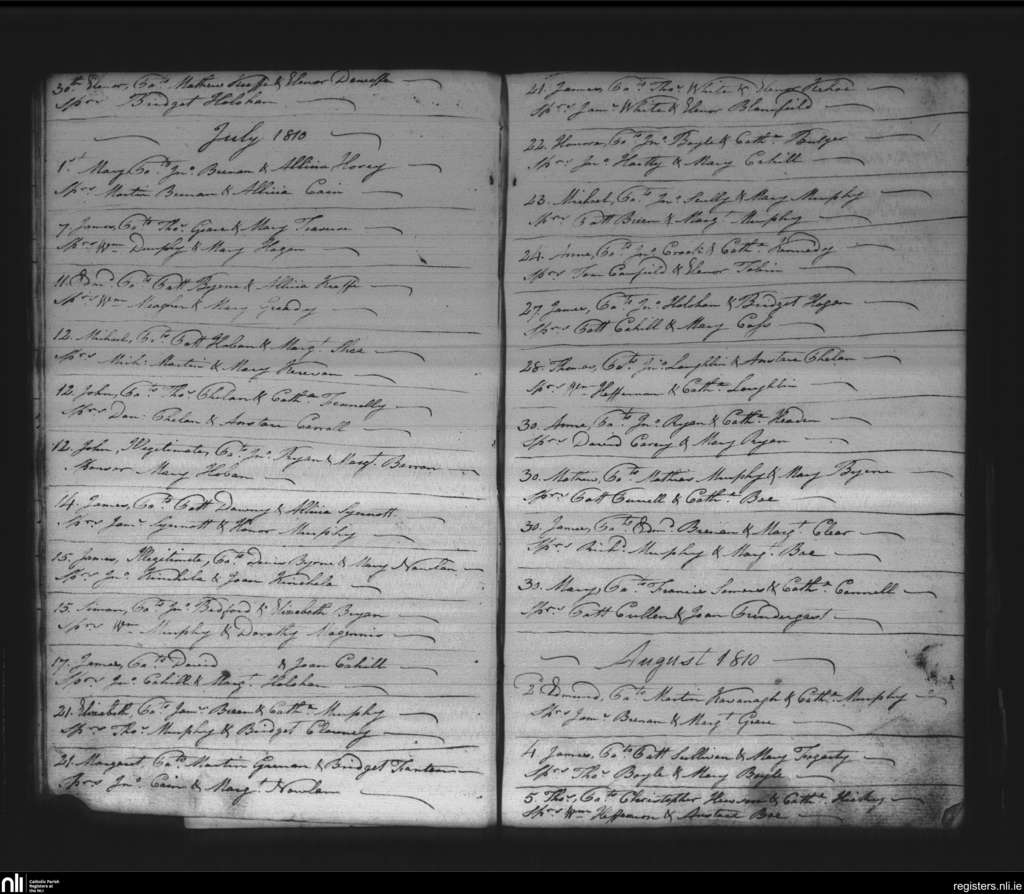 30th Elenor, Co.ts Mathew Keeffe & Elenor
Sp.rs Bridget Holohan
July 1810
1st Mary, Co.ts Jno. Brenan & Allicia
Sp.rs Martin Brenan & Allicia Cain
7. James, Co.ts Thos. Grace & Mary
Sp.rs Wm. Dunphy & Mary Hogan
11. Edmd. Co.ts Patt Byrne & Allicia Keeffe
Sp.rs Wm. Meagher & Mary Grady
12. Michael, Co.ts Patt Hoban & Margt. Shea
Sp.rs Mich: Martin & Mary Kerevan
12. John, Co.ts Thos. Phelan & Cath.e Fennelly
Sp.rs Dan. Phelan & Anstace Carroll
12. John, Illegitimate, Co.ts Jno. Ryan & Margt.
Sponsor Mary Hoban
14. James, Co.ts Patt Downy & Allicia Synnott
Sp.rs Jams. Synnott & Honor Murphy
15. James, Illegitimate, Co.ts Denis Byrne & Mary Nowlan
Sp.rs Jno. & Joan
15. Simon, Co.ts Jno. Bedford & Elizabeth Bryan
Sp.rs Wm. Murphy & Dorothy Magennis
17. James, Co.ts David & Joan Cahill
Sp.rs Jno. Cahill & Margt. Holohan
21. Elizabeth, Co.ts Jams. Breen & Cath.e Murphy
Sp.rs Thos. Murphy & Bridget
21. Margaret, Co.ts Martin & Bridget
Sp.rs Jno. Cain & Margt. Nowlan
21. James, Co.ts Thos. White & Elenor Kehoe
Sp.rs Jams. White & Elenor Blanchfield
22. Honora, Co.ts Jno. Boyle & Cath.e
Sp.rs Jno. & Mary Cahill
23. Michael, Co.ts Jno. Scully & Mary Murphy
Sp.rs Patt Breen & Margt. Murphy
24. Anne, Co.ts Jno. Crook & Cath.e Kennedy
Sp.rs Tom & Elenor Tobin
27. James, Co.ts Jno. Holohan & Bridget Hogan
Sp.rs Patt Cahill & Mary Cass
28. Thomas, Co.ts Jno. Loughlin & Anstace Phelan
Sp.rs Wm. Heffernan & Cath.e Loughlin
30. Anne, Co.ts Jno. Ryan & Cath.e Headen
Sp.rs David Carey & Mary Ryan
30. Mathew, Co.ts Mathias Murphy & Mary Byrne
Sp.rs Patt & Cath.e Boe
30. James, Co.ts Edmd. Brenan & Margt. Clear
Sp.rs Richd. Murphy & Margt. Boe
30. Mary, Co.ts Francis Somers & Cath.e Connell
Sp.rs Patt Cullen & Joan Prendergast
August 1810
2d Edmund, Co.ts Martin Kavanagh & Cath.e Murphy
Sp.rs Jams. Brenan & Margt. Grace
4. James, Co.ts Patt Sullivan & Mary Fogarty
Sp.rs Thos. Boyle & Mary Boyle
5. Thos. Co.ts Christopher & Cath.e Hickey
Sp.rs Wm. Heffernan & Anstace Boe
nli Catholic Parish Registers at the NLI
registers.nli.ie